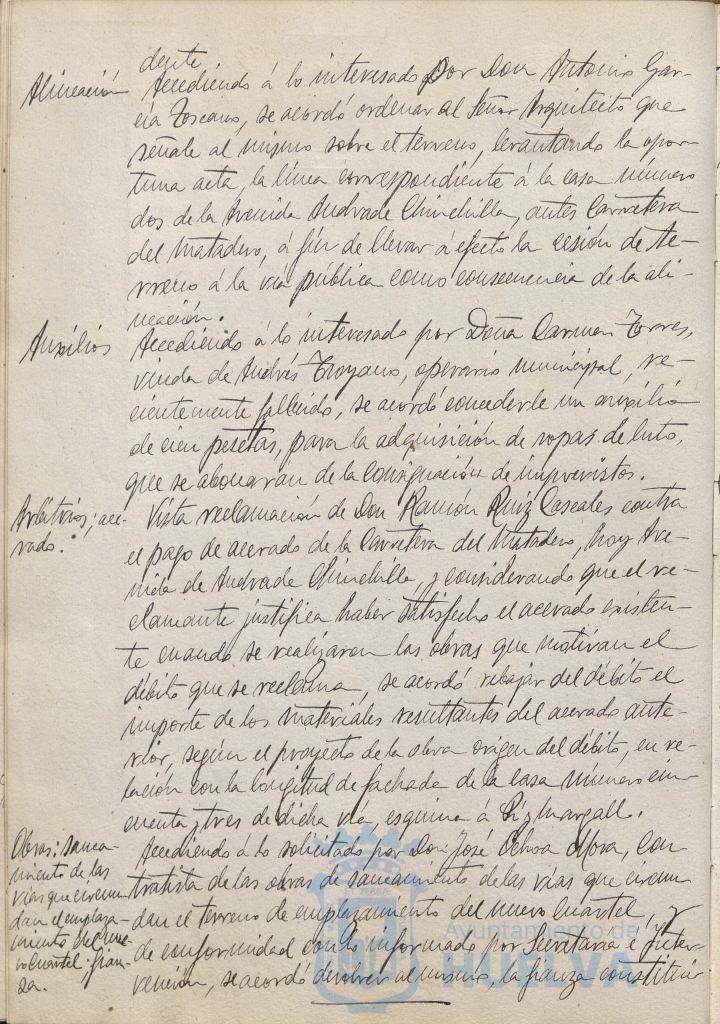 dente.
Alineación
Accediendo á lo interesado por Don Antonio Gar-
cía Toscano, se acordó ordenar al Señor Arquitecto que
señale al mismo sobre el terreno, levantando la opor-
tuna acta, la línea correspondiente á la casa número
dos de la Avenida Andrade Chinchilla, antes Carretera
del Matadero, á fin de llevar á efecto la cesión de te-
rreno á la vía pública como consecuencia de la ali-
neación.
Auxilios
Accediendo á lo interesado por Doña Carmen Torres,
viuda de Andrés Troyano, operario municipal, re-
cientemente fallecido, se acordó concederle un auxilio
de cien pesetas, para la adquisición de ropas de luto,
que se abonaran de la Consignación de imprevistos.
Arbitrios; ace-
rado.
Vista reclamación de Don Ramón Ruiz Cascales contra
el pago de acerado de la Carretera del Matadero, hoy Ave-
nida de Andrade Chinchilla, y considerando que el re-
clamante justifica haber satisfecho el acerado existen-
te cuando se realizaron las obras que motivan el
débito que se reclama, se acordó rebajar del débito el
importe de los materiales resultantes del acerado ante-
rior, según el proyecto de la obra origen del débito, en re-
lación con la longitud de fachada de la casa número cin-
cuenta y tres de dicha vía, esquina á Pí y Margall.
Obras: Sanea-
miento de las
vías que circun
dan el emplaza-
miento del nue-
vo Cuartel: fian-
za.
Accediendo á lo solicitado por Don José Ochoa Mora, Con-
tratista de las obras de saneamiento de las vías que circun
dan el terreno de emplazamiento del nuevo Cuartel, y
de conformidad con lo informado por Secretaría é Inter-
vención, se acordó devolver al mismo, la fianza constitui-
Ayuntamiento de
HUELVA